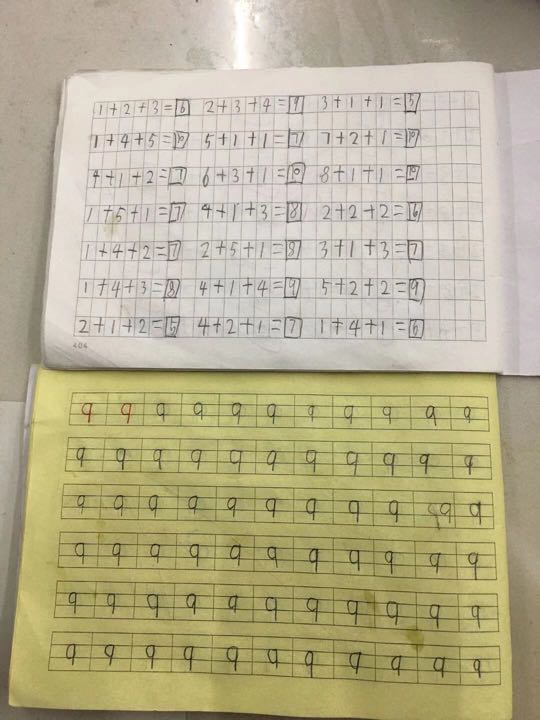 1+2+3=6 2+3+4=9 3+1+1=5
1+4+5=10 5+1+1=7 7+2+1=10
4+1+2=7 6+3+1=10 8+1+1=10
1+5+1=7 4+1+3=8 2+2+2=6
1+4+2=7 2+5+1=8 3+1+3=7
1+4+3=8 4+1+4=9 5+2+2=9
2+1+2=5 4+2+1=7 1+4+1=6
404
9 9 9 9 9 9 9 9 9 9 9
9 9 9 9 9 9 9 9 9 9 9
9 9 9 9 9 9 9 9 9 9 9
9 9 9 9 9 9 9 9 9 9 9
9 9 9 9 9 9 9 9 9 9 9
9 9 9 9 9 9 9 9 9 9 9